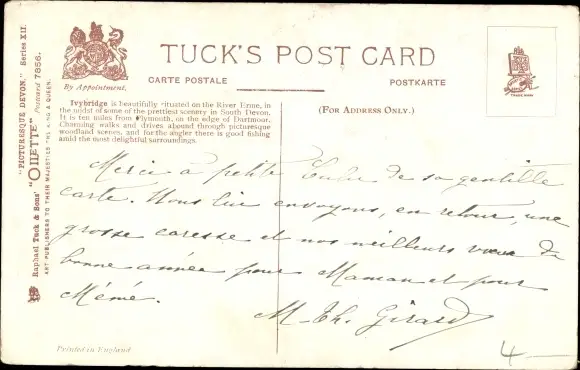 TUCK'S POST CARD
CARTE POSTALE
POSTKARTE
By Appointment.
TRADE MARK
(FOR ADDRESS ONLY.)
Ivybridge is beautifully situated on the River Erme, in
the midst of some of the prettiest scenery in South Devon.
It is ten miles from Plymouth, on the edge of Dartmoor.
Charming walks and drives abound through picturesque
woodland scenes, and for the angler there is good fishing
amid the most delightful surroundings.
"PICTURESQUE DEVON." Series XII.
Raphael Tuck & Sons' "OILETTE" Postcard 7856.
ART PUBLISHERS TO THEIR MAJESTIES THE KING & QUEEN.
Merci à petite de sa gentille
carte. Nous lui envoyons, en retour, une
grosse caresse et nos meilleurs vœux de
bonne année pour Maman et pour
Mémé.
M. Th. Girard
Printed in England
4-